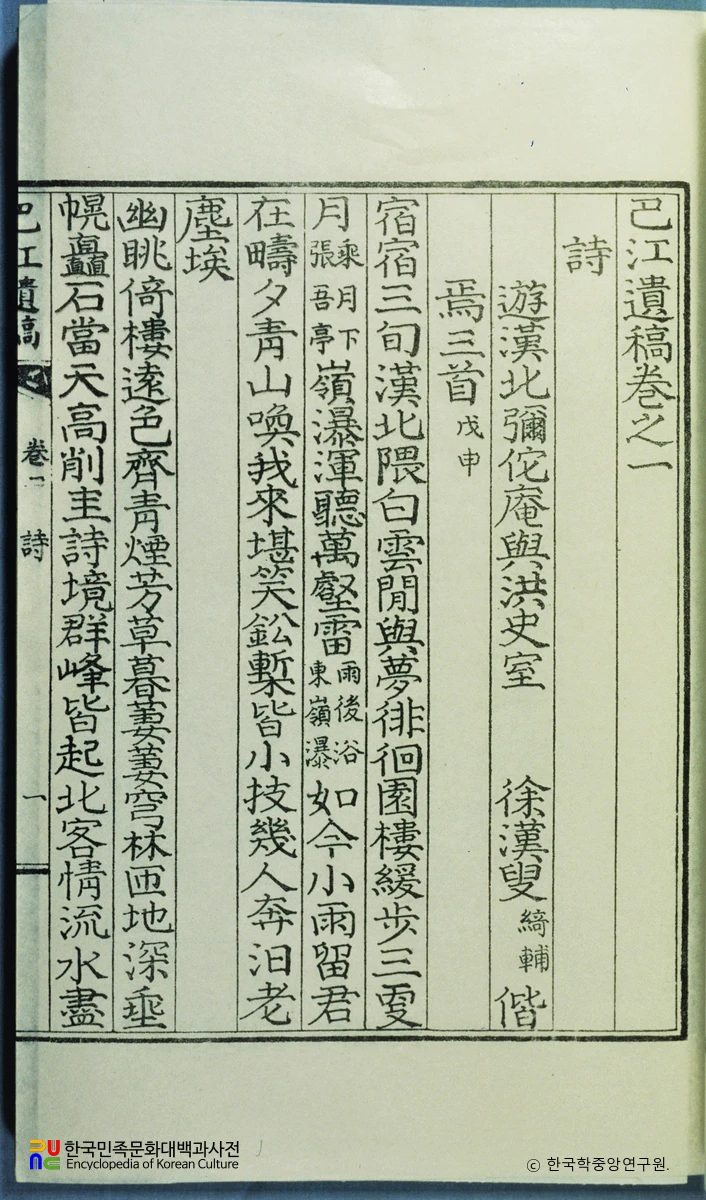 巴江遺稿卷之一
詩
遊漢北彌佗庵與洪史室 徐漢叟 綺輔 偕
焉三首 戊申
宿宿三旬漢北隈白雲閒與夢徘徊園樓緩步三更
月 乘月下張吾亭 嶺瀑渾聽萬壑雷 雨後浴東嶺瀑 如今小雨留君
在疇夕青山喚我來堪笑鈆槧皆小技幾人奔汨老
塵埃
幽眺倚樓遠色齊青煙芳草暮萋萋穹林匝地深垂
幌矗石當天高削圭詩境群峰皆起北客情流水盡
巴江遺稿 卷一 詩 一
한국민족문화대백과사전
Encyclopedia of Korean Culture
ⓒ 한국학중앙연구원.